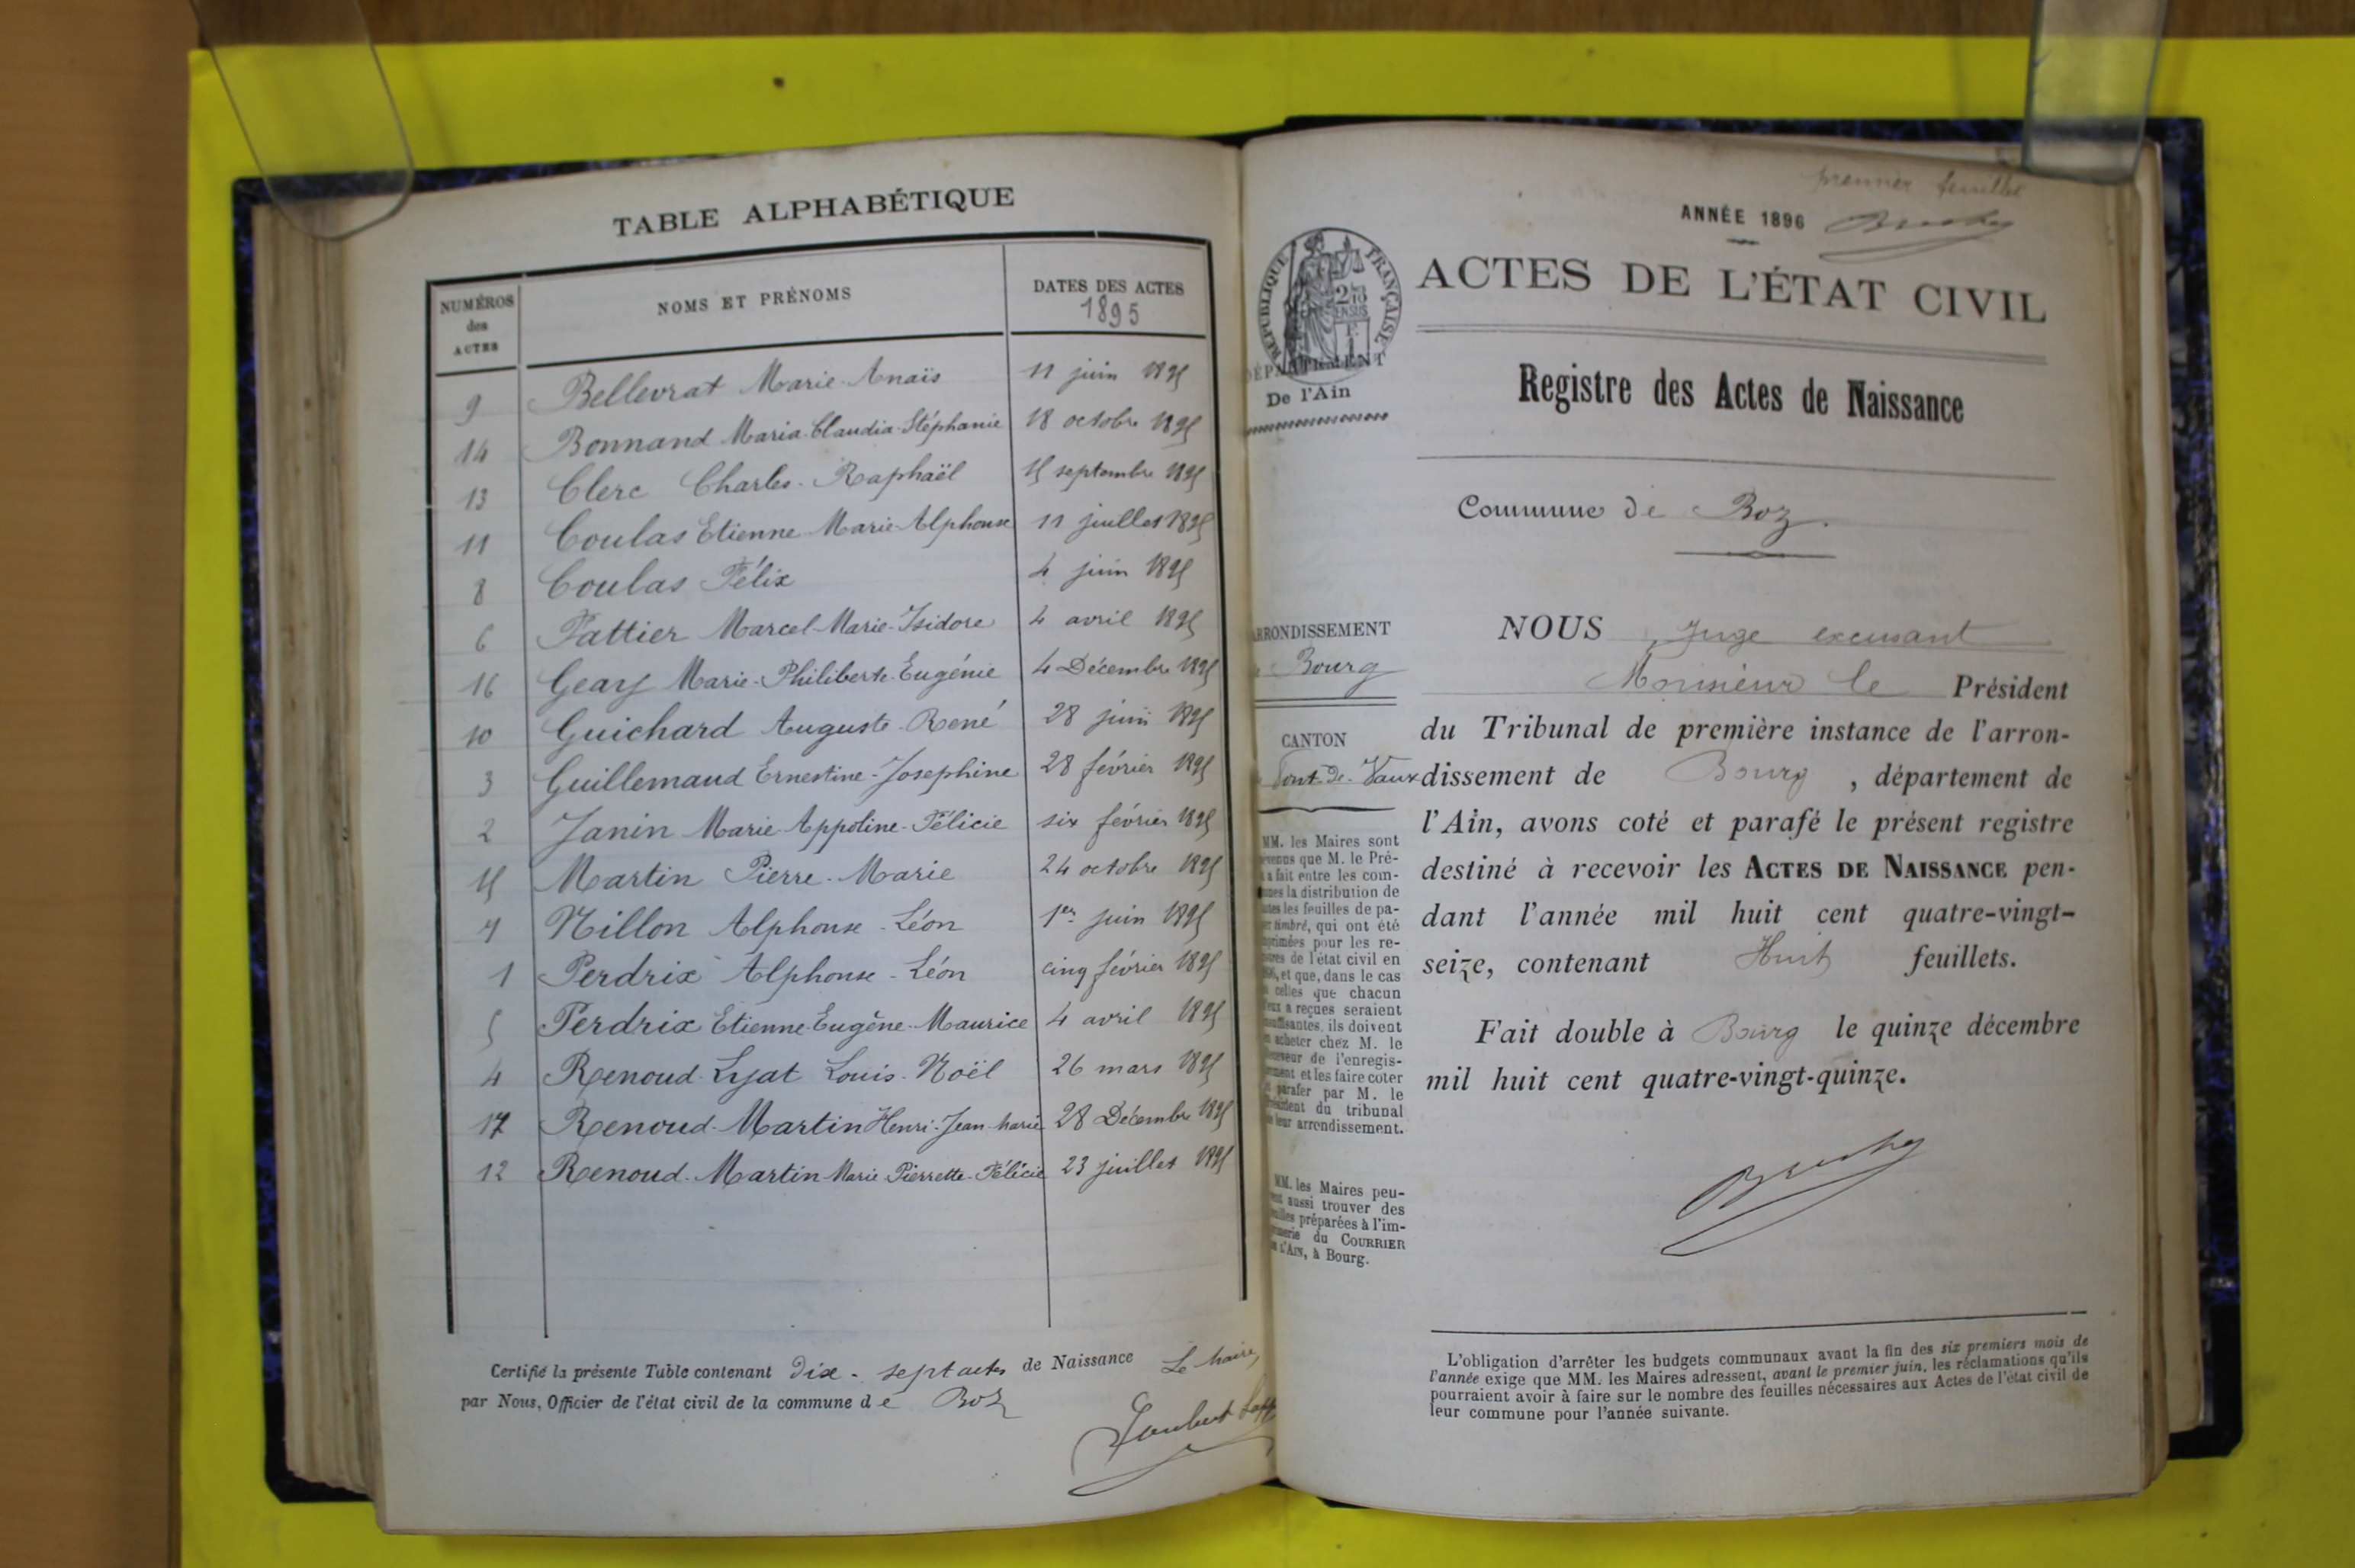 TABLE ALPHABÉTIQUE
NUMÉROS des ACTES NOMS ET PRÉNOMS DATES DES ACTES 1895
9 Bellevrat Marie-Anaïs 11 juin 1895
14 Bonnand Maria-Claudia-Stéphanie 18 octobre 1895
13 Clerc Charles-Raphaël 15 septembre 1895
11 Coulas Etienne-Marie-Alphonse 11 juillet 1895
8 Coulas Félix 4 juin 1895
6 Fattier Marcel-Marie-Isidore 4 avril 1895
16 Geay Marie-Philiberte-Eugénie 4 Décembre 1895
10 Guichard Auguste-René 28 juin 1895
3 Guillemaud Ernestine-Josephine 28 février 1895
2 Janin Marie-Appoline-Félicie six février 1895
15 Martin Pierre-Marie 24 octobre 1895
7 Nillon Alphonse-Léon 1er juin 1895
1 Perdrix Alphonse-Léon cinq février 1895
5 Perdrix Etienne-Eugène-Maurice 4 avril 1895
4 Renoud-Lyat Louis-Noël 26 mars 1895
17 Renoud-Martin Henri-Jean-Marie 28 Décembre 1895
12 Renoud-Martin Marie-Pierrette-Félicie 23 juillet 1895
Certifié la présente Table contenant Dix-sept actes de Naissance
par Nous, Officier de l'état civil de la commune de Boz
Le Maire,
Joubert
premier feuillet
ANNÉE 1896
ACTES DE L'ÉTAT CIVIL
RÉPUBLIQUE FRANÇAISE
DÉPARTEMENT
De l'Ain
Registre des Actes de Naissance
Commune de Boz.
ARRONDISSEMENT
Bourg
CANTON
Pont-de-Vaux
MM. les Maires sont
prévenus que M. le Pré-
a fait entre les com-
munes la distribution de
toutes les feuilles de pa-
pier timbré, qui ont été
imprimées pour les re-
gistres de l'état civil en
et que, dans le cas
celles que chacun
d'eux a reçues seraient
insuffisantes, ils doivent
en acheter chez M. le
Receveur de l'enregis-
trement et les faire coter
et parafer par M. le
Président du tribunal
de leur arrondissement.
MM. les Maires peu-
vent aussi trouver des
feuilles préparées à l'im-
primerie du COURRIER
DE L'AIN, à Bourg.
NOUS Juge excusant
Monsieur le Président
du Tribunal de première instance de l'arron-
dissement de Bourg, département de
l'Ain, avons coté et parafé le présent registre
destiné à recevoir les ACTES DE NAISSANCE pen-
dant l'année mil huit cent quatre-vingt-
seize, contenant Huit feuillets.
Fait double à Bourg le quinze décembre
mil huit cent quatre-vingt-quinze.
L'obligation d'arrêter les budgets communaux avant la fin des six premiers mois de
l'année exige que MM. les Maires adressent, avant le premier juin, les réclamations qu'ils
pourraient avoir à faire sur le nombre des feuilles nécessaires aux Actes de l'état civil de
leur commune pour l'année suivante.